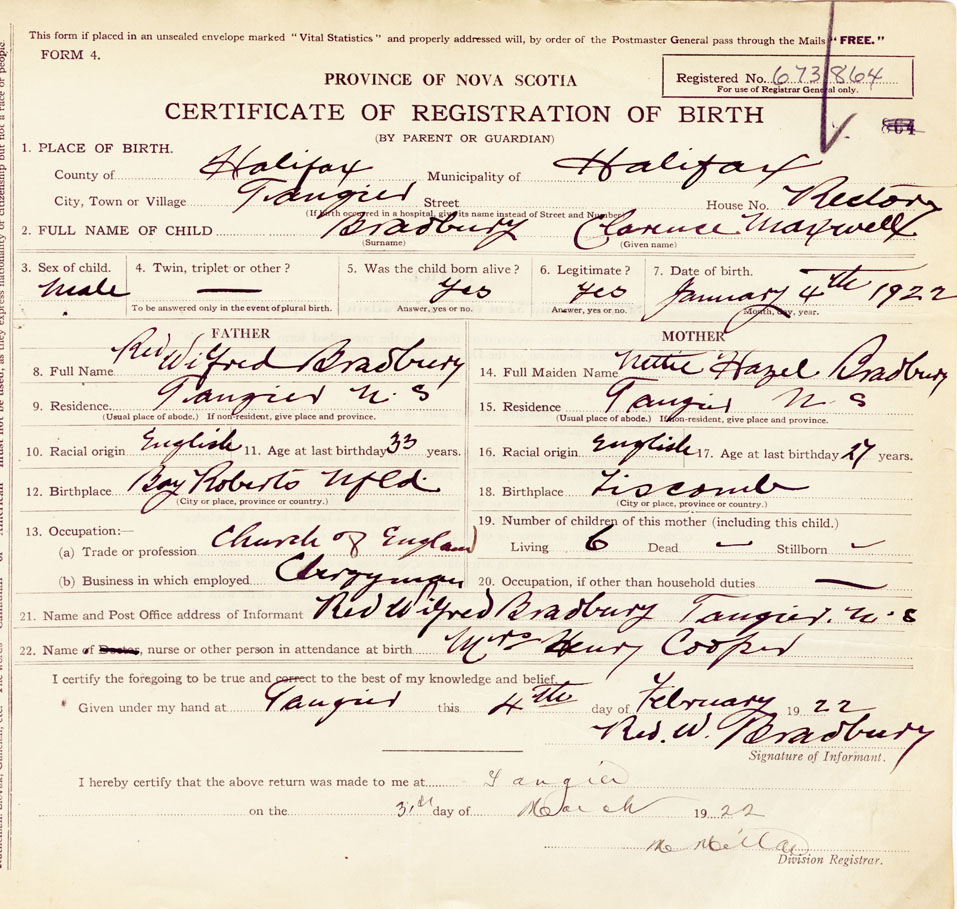 This form if placed in an unsealed envelope marked "Vital Statistics" and properly addressed will, by order of the Postmaster General pass through the Mails "FREE."
FORM 4.
PROVINCE OF NOVA SCOTIA
Registered No. 673864
For use of Registrar General only.
CERTIFICATE OF REGISTRATION OF BIRTH
(BY PARENT OR GUARDIAN)
864
1. PLACE OF BIRTH.
County of Halifax Municipality of Halifax
City, Town or Village Tangier Street House No. Rectory
(If birth occurred in a hospital, give its name instead of Street and Number)
2. FULL NAME OF CHILD Bradbury Clarence Maxwell
(Surname) (Given name)
3. Sex of child. 4. Twin, triplet or other? 5. Was the child born alive? 6. Legitimate? 7. Date of birth.
Male — Yes Yes January 4th 1922
To be answered only in the event of plural birth. Answer, yes or no. Answer, yes or no. Month, day, year.
FATHER MOTHER
8. Full Name Rev Wilfred Bradbury 14. Full Maiden Name Nettie Hazel Bradbury
9. Residence Tangier N. S 15. Residence Tangier N S
(Usual place of abode.) If non-resident, give place and province. (Usual place of abode.) If non-resident, give place and province.
10. Racial origin English 11. Age at last birthday 33 years. 16. Racial origin English 17. Age at last birthday 27 years.
12. Birthplace Bay Roberts Nfld. 18. Birthplace Liscomb
(City or place, province or country.) (City or place, province or country.)
13. Occupation:— 19. Number of children of this mother (including this child.)
(a) Trade or profession Church of England Living 6 Dead — Stillborn —
(b) Business in which employed Clergyman 20. Occupation, if other than household duties —
21. Name and Post Office address of Informant Rev Wilfred Bradbury Tangier. N. S
22. Name of Doctor, nurse or other person in attendance at birth Mrs Henry Cooper
I certify the foregoing to be true and correct to the best of my knowledge and belief.
Given under my hand at Tangier this 4th day of February 1922
Rev. W. Bradbury
Signature of Informant.
I hereby certify that the above return was made to me at Tangier
on the day of March 1922
Division Registrar.